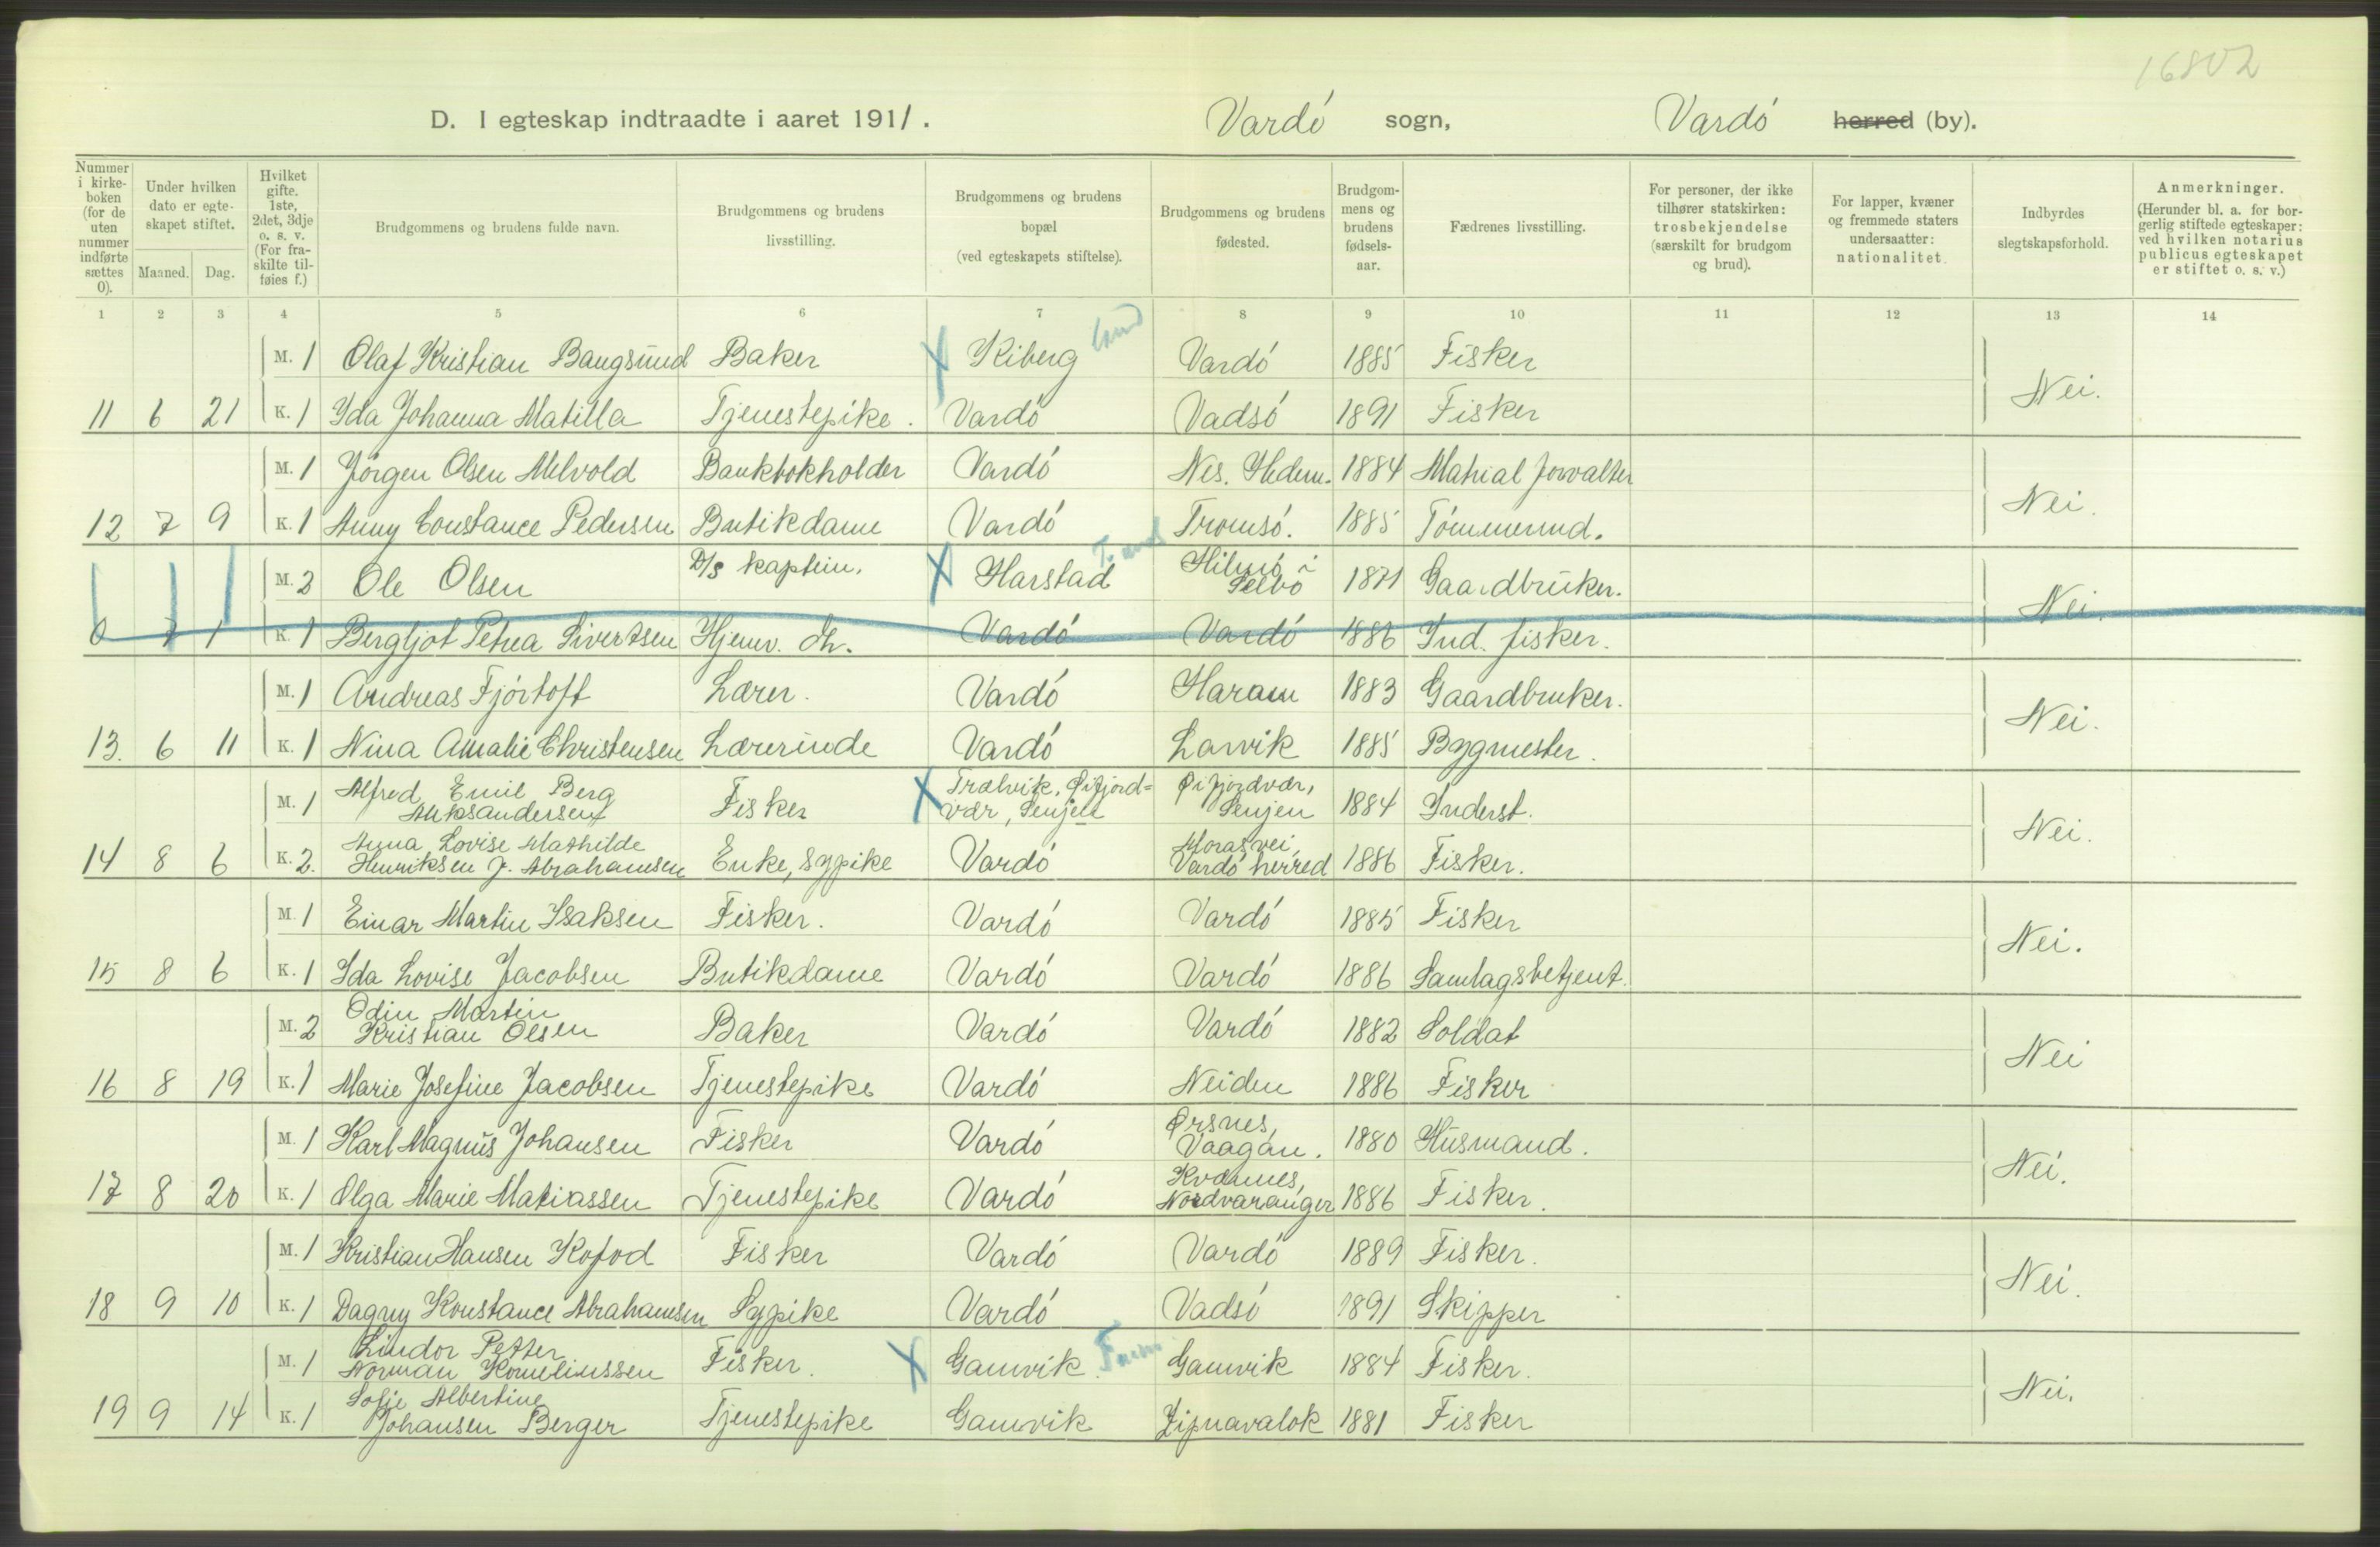 16802
D. I egteskap indtraadte i aaret 1911. Vardó sogn, Vardó herred (by).
Nummer i kirkeboken (for de uten nummer indførte sættes 0).
Under hvilken dato er egteskapet stiftet.
Maaned. Dag.
Hvilket gifte. 1ste, 2det, 3dje o. s. v. (For fraskilte tilføies f.)
Brudgommens og brudens fulde navn.
Brudgommens og brudens livsstilling.
Brudgommens og brudens bopæl (ved egteskapets stiftelse).
Brudgommens og brudens fødested.
Brudgommens og brudens fødselsaar.
Fædrenes livsstilling.
For personer, der ikke tilhører statskirken: trosbekjendelse (særskilt for brudgom og brud).
For lapper, kvæner og fremmede staters undersaatter: nationalitet.
Indbyrdes slegtskapsforhold.
Anmerkninger. (Herunder bl. a. for borgerlig stiftede egteskaper: ved hvilken notarius publicus egteskapet er stiftet o. s. v.)
1 2 3 4 5 6 7 8 9 10 11 12 13 14
M. 1 Olaf Kristian Bangsund Baker X Kiberg Vardó 1885 Fisker
Nei.
11 6 21 K. 1 Ida Johanna Matilla Tjenestepike. Vardó Vadsó 1891 Fisker
M. 1 Jørgen Olsen Melvold Bankbokholder Vardó Nes. Hedem. 1884 Matrial forvalter
Nei.
12 7 9 K. 1 Anny Constance Pedersen Butikdame Vardó Tromsó. 1885 Tómmermd.
M. 2 Ole Olsen D/S kaptein. X Harstad Selbo 1871 Gaardbruker.
Nei.
0 7 1 K. 1 Bergljot Petrea Sivertsen Hjemv. dtr. Vardó Vardó 1886 Ind. fisker.
M. 1 Andreas Fjórtoft Lærer. Vardó Haram 1883 Gaardbruker.
Nei.
13. 6 11 K. 1 Nina Amalie Christensen Lærerinde Vardó Larvik 1885 Bygmester.
Alfred Emil Berg Trælvik, Øifjord= Øifjordvær,
M. 1 Aleksandersen Fisker X vær, Senjen Senjen 1884 Inderst.
Nei.
Anna Lovise Mathilde Morasvei,
14 8 6 K. 2. Henriksen f. Abrahamsen Enke, sypike Vardó Vardó herred 1886 Fisker.
M. 1 Einar Martin Isaksen Fisker. Vardó Vardó 1885 Fisker
Nei.
15 8 6 K. 1 Ida Lovise Jacobsen Butikdame Vardó Vardó 1886 Samlagsbetjent.
Odin Martin
M. 2 Kristian Olsen Baker Vardó Vardó 1882 Soldat
Nei
16 8 19 K. 1 Marie Josefine Jacobsen Tjenestepike Vardó Neiden 1886 Fisker
Ørsnes,
M. 1 Karl Magnus Johansen Fisker Vardó Vaagan. 1880 Husmand.
Nei.
Kvamnes,
17 8 20 K. 1 Olga Marie Matiassen Tjenestepike Vardó Nordvaranger 1886 Fisker.
M. 1 Kristian Hansen Kofod Fisker Vardó Vardó 1889 Fisker.
Nei.
18 9 10 K. 1 Dagny Konstance Abrahamsen Sypike Vardó Vadsó 1891 Skipper
Lindor Petter
M. 1 Norman Korneliussen Fisker. X Gamvik. Gamvik 1884 Fisker.
Nei.
Sofie Albertine
19 9 14 K. 1 Johansen Berger Tjenestepike Gamvik Zipnavalok 1881 Fisker